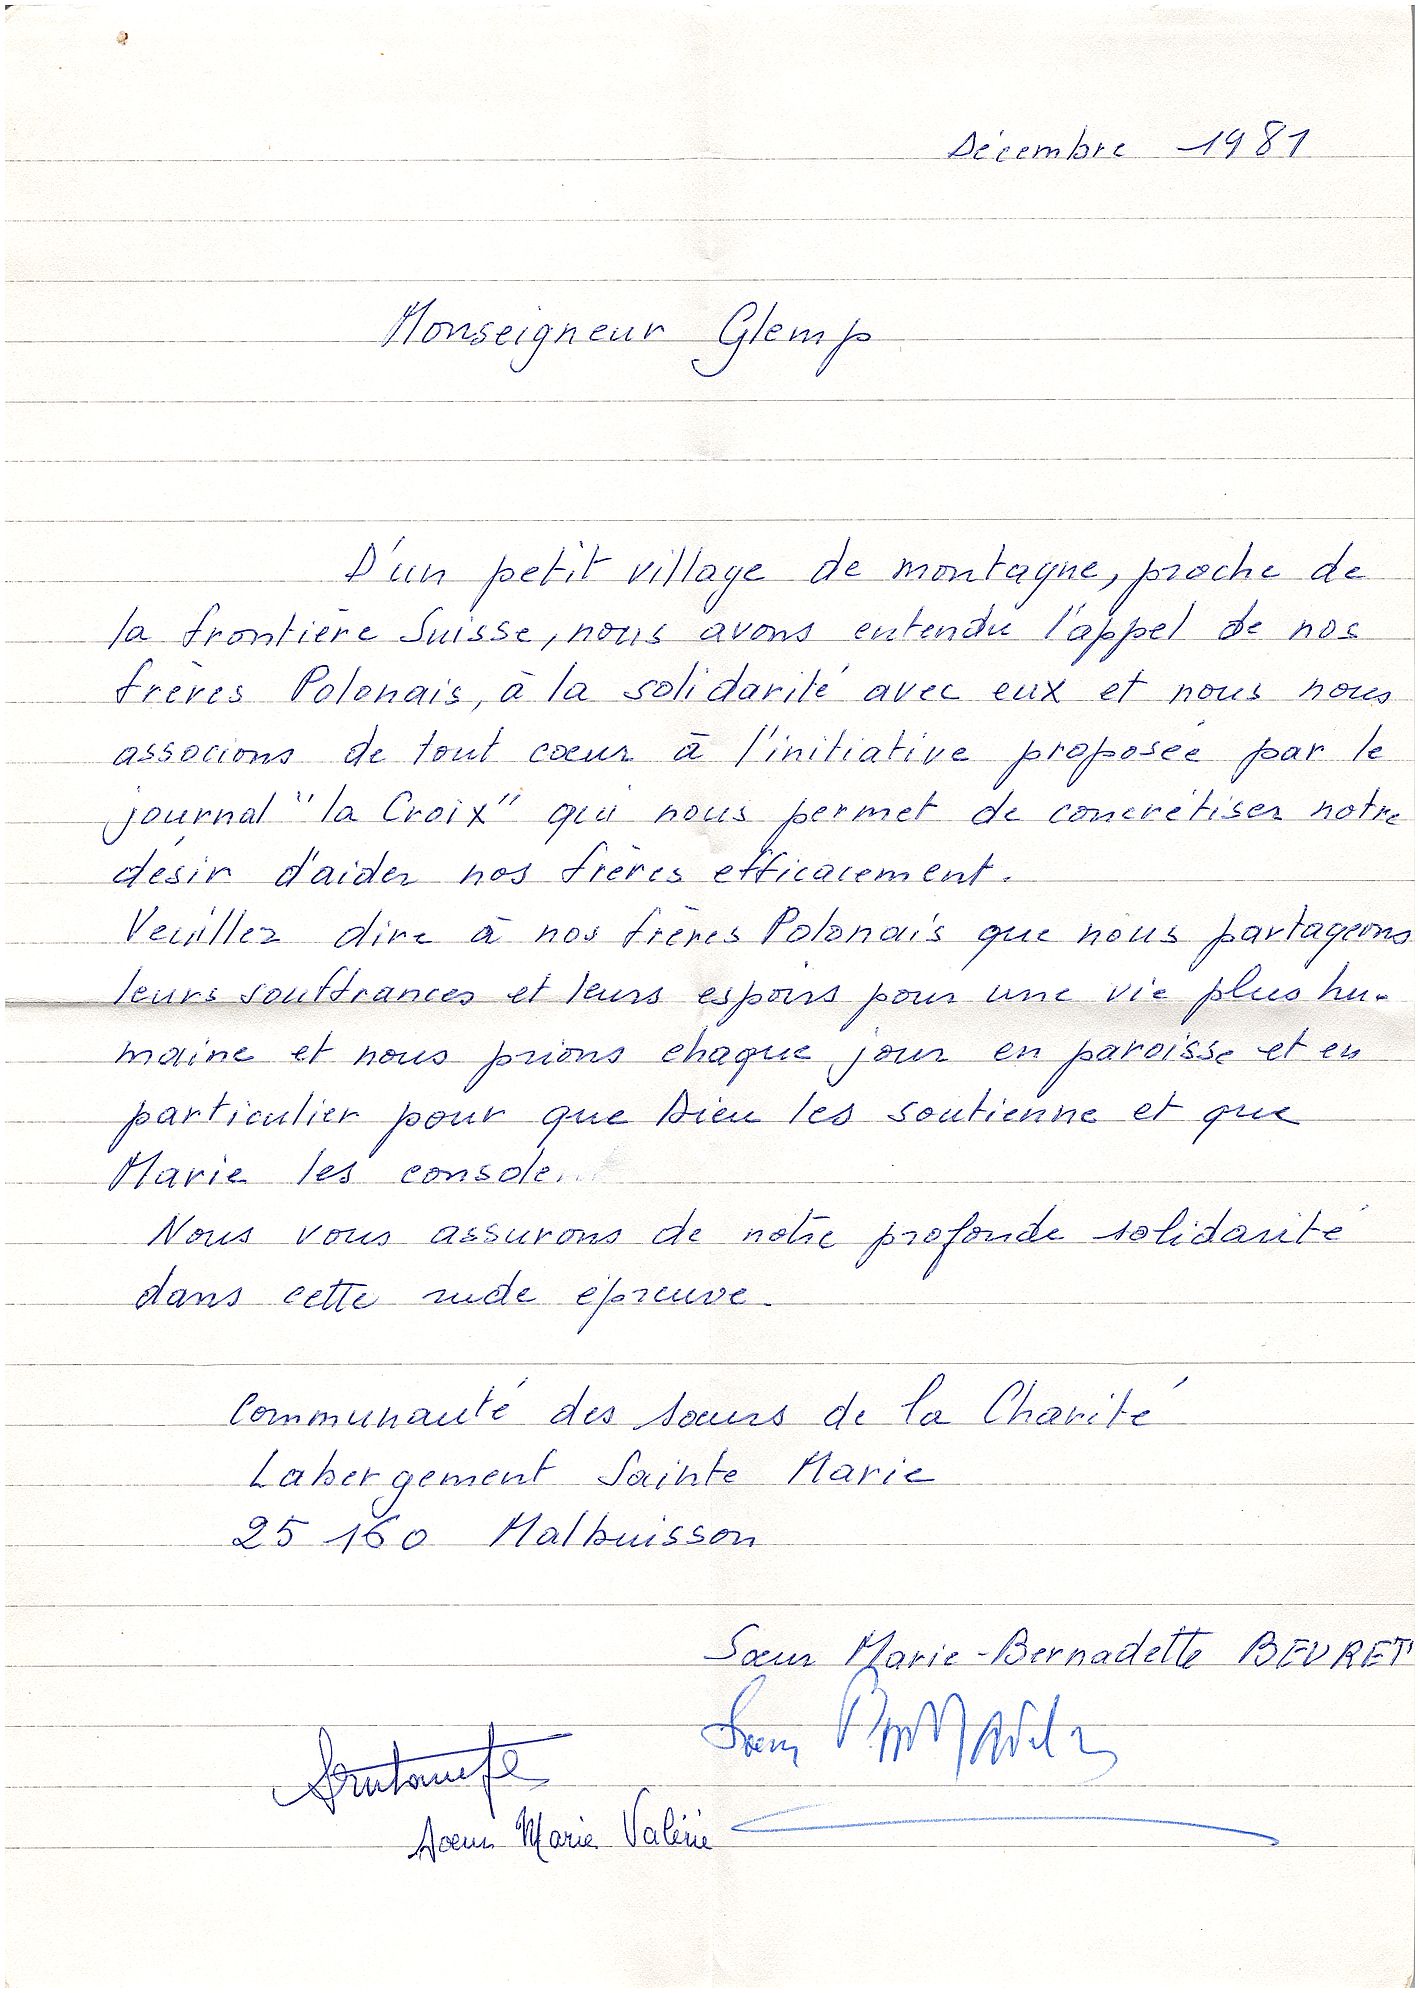 Décembre 1981
Monseigneur Glemp
D'un petit village de montagne, proche de
la frontière Suisse, nous avons entendu l'appel de nos
frères Polonais, à la solidarité avec eux et nous nous
associons de tout cœur à l'initiative proposée par le
journal "la Croix" qui nous permet de concrétiser notre
désir d'aider nos frères efficacement.
Veuillez dire à nos frères Polonais que nous partageons
leurs souffrances et leurs espoirs pour une vie plus hu-
maine et nous prions chaque jour en paroisse et en
particulier pour que Dieu les soutienne et que
Marie les console
Nous vous assurons de notre profonde solidarité
dans cette rude épreuve.
Communauté des sœurs de la Charité
Labergement Sainte Marie
25 160 Malbuisson
Sœur Marie-Bernadette BEURET
Sœur
Sœur Marie Valérie